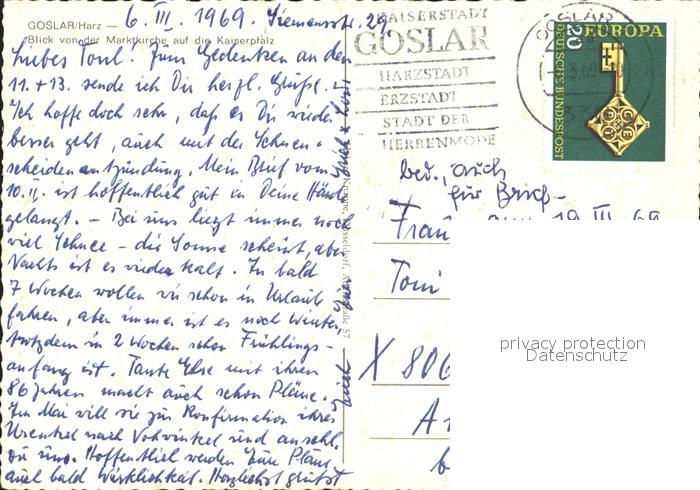 GOSLAR/Harz — 6. III. 1969. Siemensstr. 29.
Blick von der Marktkirche auf die Kaiserpfalz
Liebes Toni. Zum Gedenken an den
11. + 13. sende ich Dir herzl. Grüße. –
Ich hoffe doch sehr, daß es Dir wieder
besser geht, auch mit der Sehnen-
scheidenentzündung. Mein Brief vom
10. II. ist hoffentlich gut in Deine Hände
gelangt. – Bei uns liegt immer noch
viel Schnee – die Sonne scheint, aber
Nachts ist es wieder kalt. In bald
7 Wochen wollen wir schon in Urlaub
fahren, aber immer ist es noch Winter
trotzdem in 2 Wochen schon Frühlings-
anfang ist. Tante Else mit ihren
86 Jahren macht auch schon Pläne.
Im Mai will sie zur Konfirmation ihres
Urenkel nach Vohwinkel und anschl.
zu uns. Hoffentlich werden Eure Pläne
auch bald Wirklichkeit. Herzlichst grüßt
KAISERSTADT
GOSLAR
HARZSTADT
ERZSTADT
STADT DER
HERRENMODE
GOSLAR
EUROPA
20
DEUTSCHE BUNDESPOST
bed., auch
für Brief
19. III. 69
Frau
Toni
X 806
privacy protection
Datenschutz